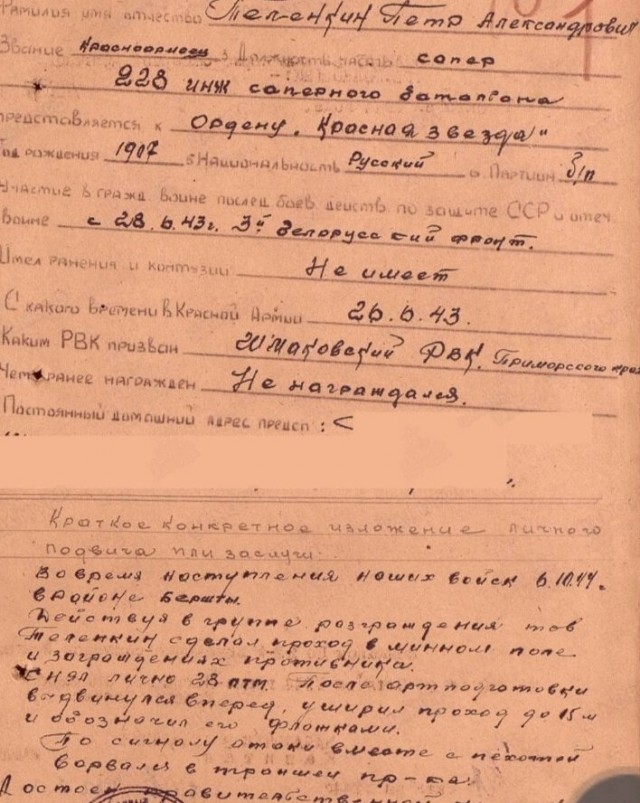 Фамилия имя отчество Теленкин Петр Александрович
Звание красноармеец 3 Должность часть сапер
228 инж саперного баталиона
представляется к Ордену „Красная звезда"
Год рождения 1907 5 Национальность Русский 6. Партийн б/п
Участие в гражд. войне послед боев. действ по защите СССР и отеч.
Войне с 28.6.43г. 3й Белорусский фронт.
Имел ранения и контузии Не имеет
С какого времени в Красной Армии 26.6.43.
Каким РВК призван Шмаковский РВК. Приморского края
Чем ранее награжден Не награждался.
Постоянный домашний адрес предст :
Краткое конкретное изложение личного
подвига или заслуги:
Во время наступления наших войск 6.10.44г.
в районе Бершты.
Действуя в группе разграждения тов
Теленкин сделал проход в минном поле
и заграждениях противника.
Снял лично 28 птм. После артподготовки
выдвинулся вперед, уширил проход до 15 м
и обозначил его флажками.
По сигналу атаки вместе с пехотой
ворвался в траншеи пр-ка.
Достоен правительственной